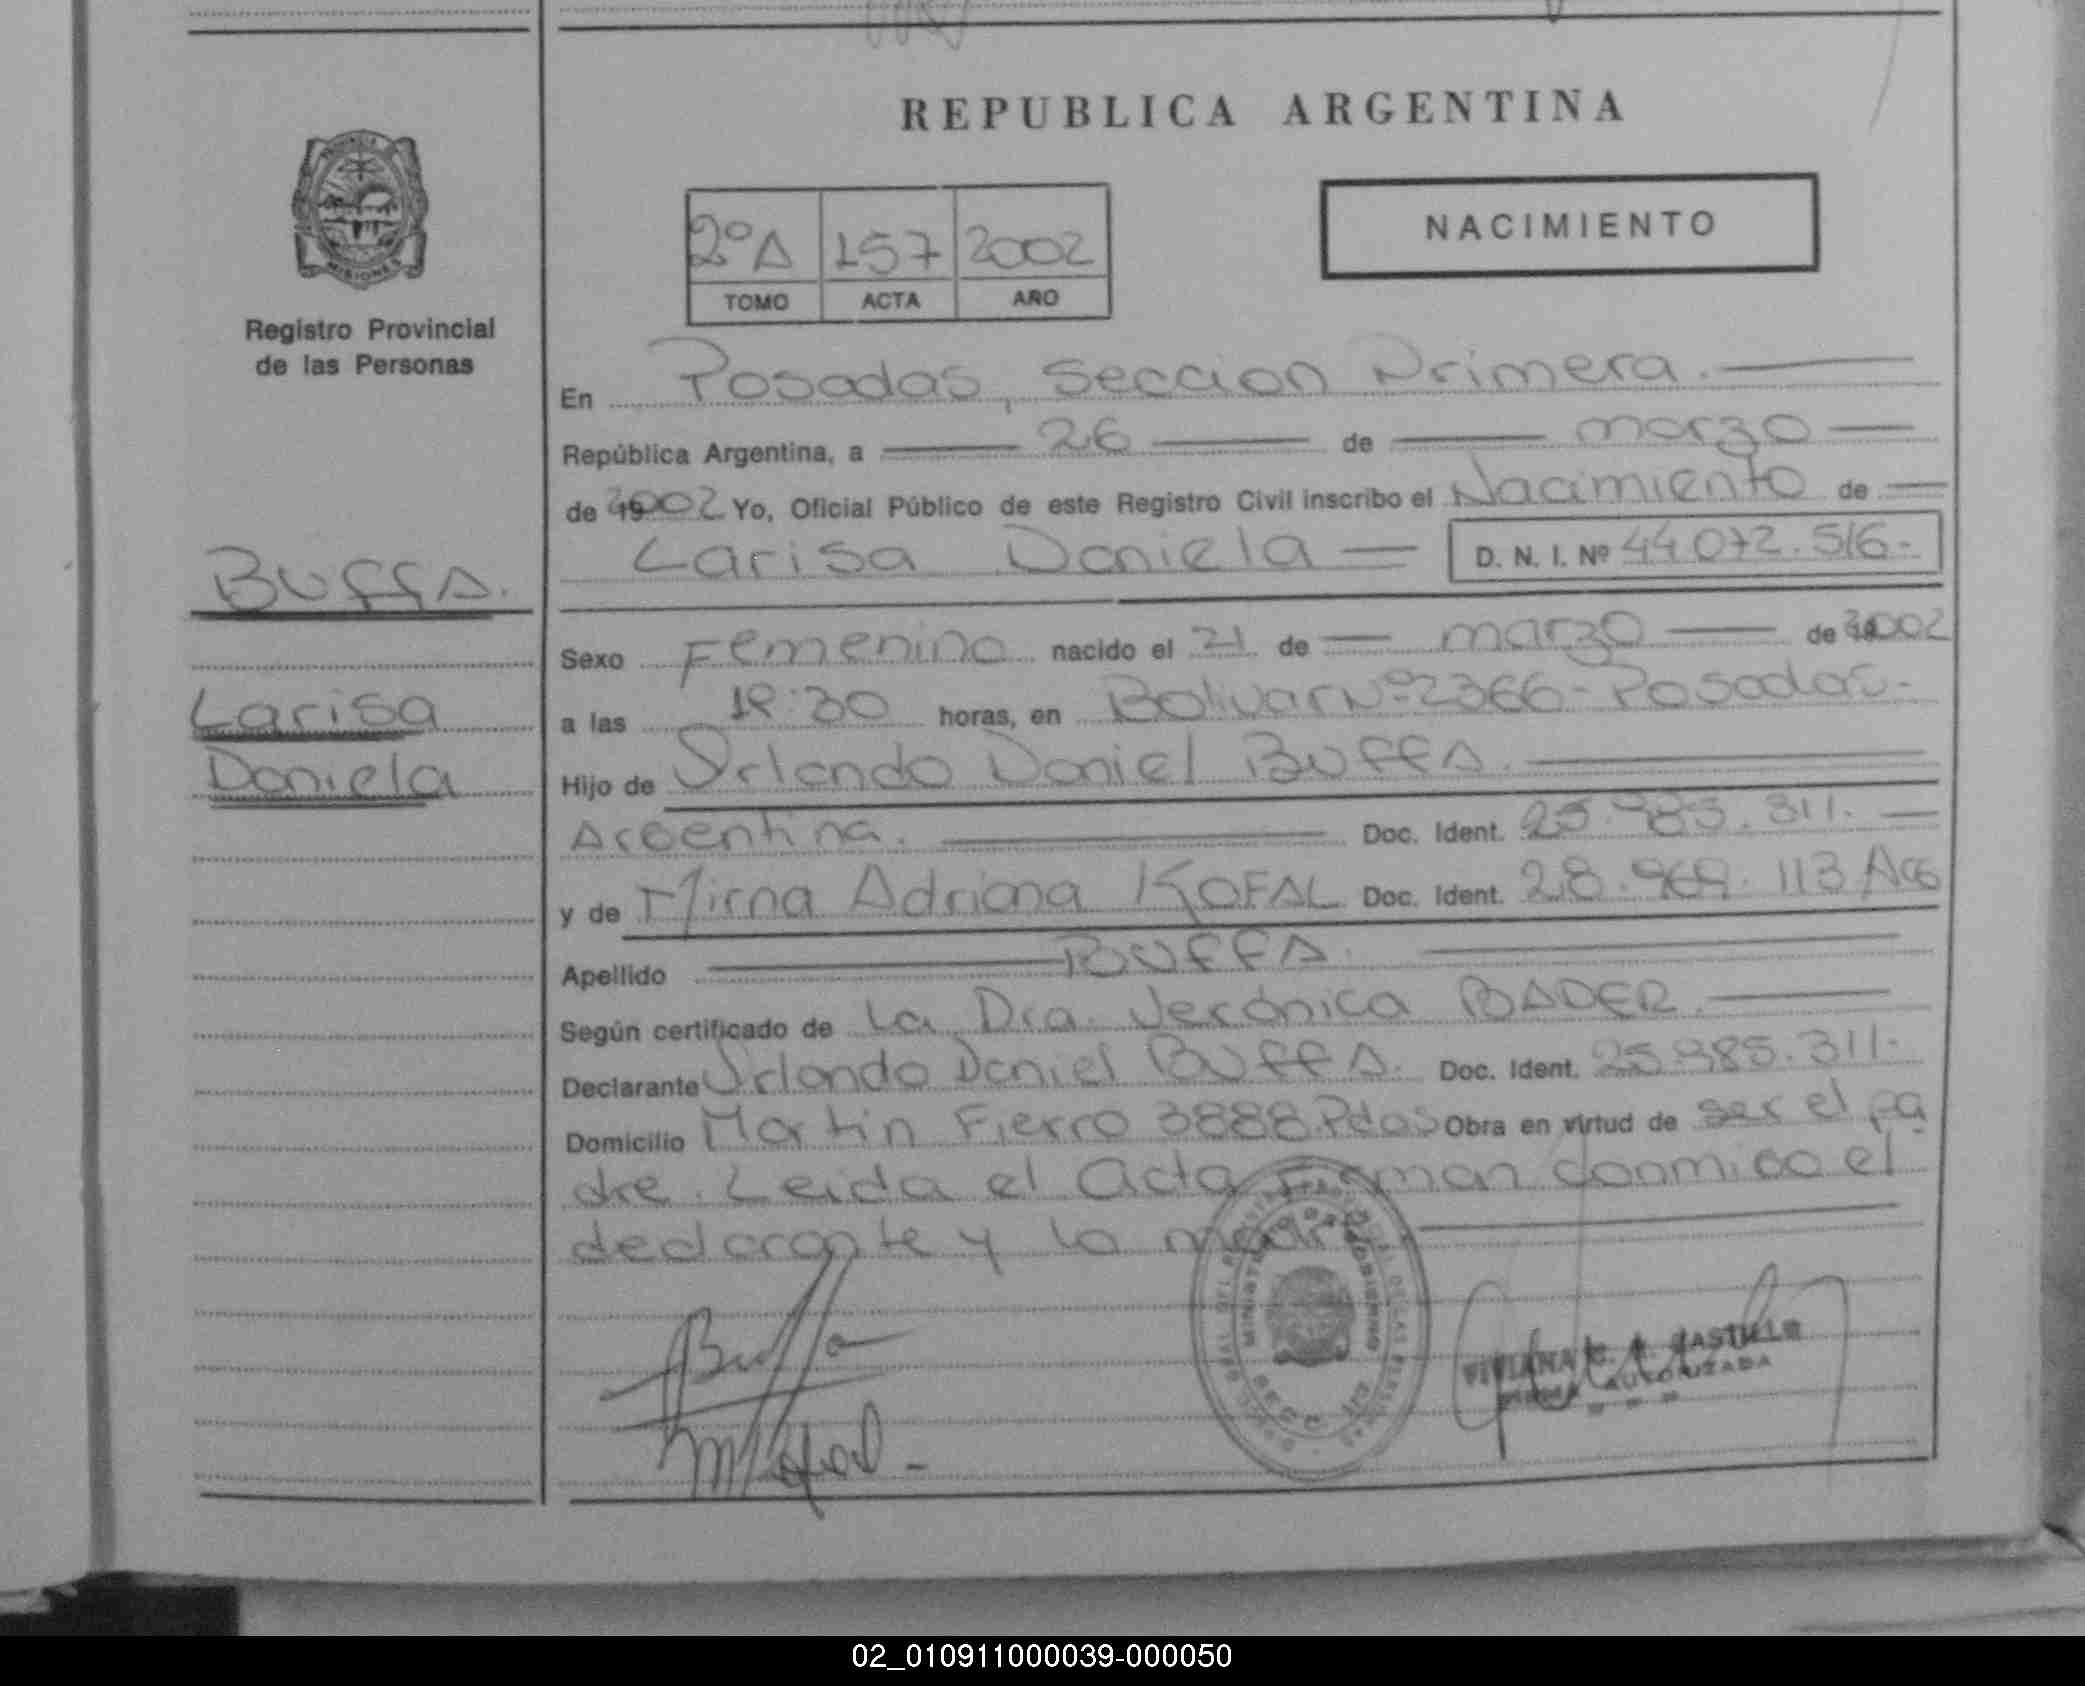 REPUBLICA ARGENTINA
NACIMIENTO
2º A 157 2002
TOMO ACTA AÑO
MISIONES
Registro Provincial
de las Personas
En Posadas, Seccion Primera.
República Argentina, a 26 de marzo
de 2002 Yo, Oficial Público de este Registro Civil inscribo el Nacimiento de
Larisa Daniela D. N. I. Nº 44.072.516.-
BUFFA.
Larisa
Daniela
Sexo Femenino nacido el 21 de marzo de 2002
a las :30 horas, en Bolivar Nº 2366 - Posadas.-
Hijo de Orlando Daniel BUFFA.
Argentina. Doc. Ident. 25.985.311.
y de Mirna Adriana KOFAL Doc. Ident. 28.969.113 Arg
Apellido BUFFA.
Según certificado de La Dra. Verónica BADER.
Declarante Orlando Daniel BUFFA. Doc. Ident. 25.985.311.
Domicilio Martin Fierro 3888 Pdas Obra en virtud de ser el pa
dre. Leida el Acta Firman conmigo el
declarante y la madre
Buffa
MKofal
VIVIANA CASTILLO
FIRMA AUTORIZADA
02_010911000039-000050